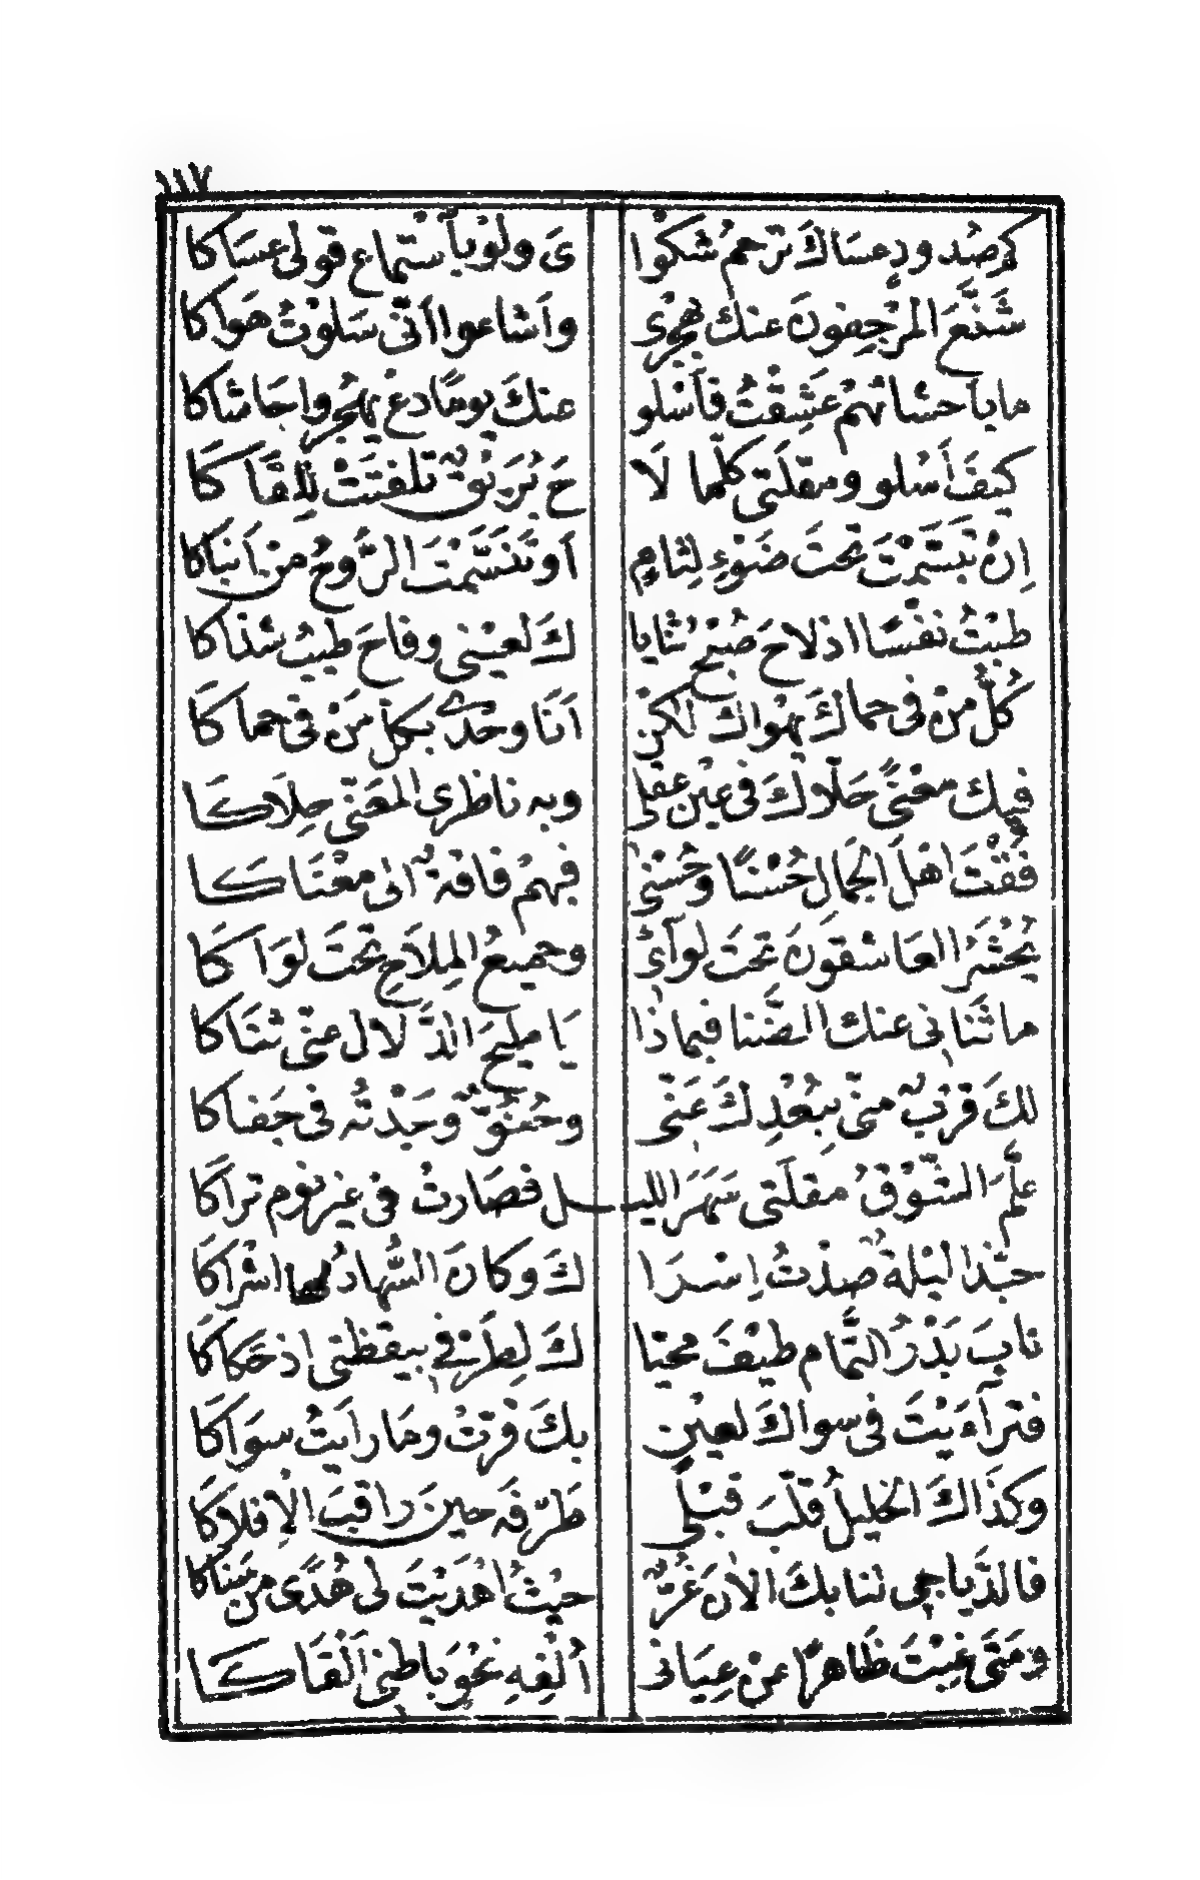 ١١٧
كم صُدودٍ عسَاكَ ترحمُ شكوا ىَ ولوْ بأستماعِ قولى عسَاكا
شَنَّعَ المرْجِفونَ عنك بهجْرى وأشاعوا أنّى سَلوْتُ هَواكا
ما بأحشائهمْ عَشِقْتُ فأسْلو عنكَ يومًا دعْ يهجُروا حَاشاكا
كيفَ أسْلو ومقلَتى كلّما لَا حَ بُرَيْقٌ تلفتَتْ لِلِقَاكَا
اِنْ تبَسَّمْتَ تحتَ ضَوْءِ لِثامٍ اَوْ تَنَسَّمْتَ الرُّوحَ مِنْ اَنباكا
طبْتُ نفْسًا اذ لاحَ صُبْحُ ثَنايا كَ لعيْنى وفاحَ طيبُ شذاكا
كلُّ مَنْ فى حماكَ يهْواكَ لكنْ اَنَا وحْدى بكلّ مَنْ فى حماكَا
فيك معْنًى حَلّاكَ فى عيْنِ عقلى وبه ناظرى المعَنّى حِلاَكا
فُقْتَ اهْلَ الجَمالِ حُسْنًا وحُسْنى فبِهمْ فاقةٌ الى معْنَاكا
يُحْشَرُ العَاشقونَ تحتَ لوآئى وجميعُ المِلاَحِ تحْتَ لوَاكَا
ما ثَنَانى عنك الضَّنا فبماذا يَا مليحَ الدَّلالِ عنّى ثنَاكا
لكَ قرْبٌ منّى بِبُعْدِكَ عَنّى وحُنُوٌّ وَجَدْتُه فى جَفاكا
علّمَ الشّوْقُ مقلَتى سَهَرَ الليـ ـل فصَارتْ فى غيرِ نوْمٍ تراكَا
حبّذا ليْلةٌ صِدْتُ اِسْرَا كَ وكانَ السُّهادُ لى اشْراكَا
نابَ بَدْرُ التَّمام طيْفَ محيّا كَ لِطَرْفى بيقظتى اذ حَكاكا
فترآءَيْتَ فى سواكَ لعيْنٍ بكَ قرّتْ ومَا رأيتُ سوَاكَا
وكذاكَ الخليلُ قلّبَ قبْلى طَرْفَه حينَ راقبَ الاِفلاَكَا
فالدّياجى لنا بكَ الاٰنَ غُرٌّ حيْثُ اهْديْتَ لى هُدًى من سَناكا
ومَتى غِبْتَ ظَاهرًا عنْ عِيَانى اُلْفِهِ نحْوَ باطنى اَلْقَاكَا